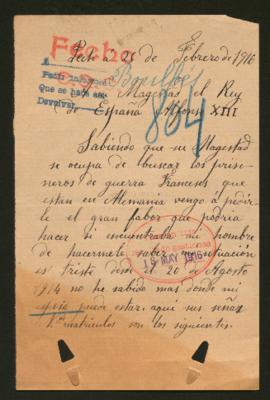 Fecho
a 25 de Febrero de 1916
A
Pedir informes
Que se hace así
Devolver
Magestad el Rey
de España Alfonso XIII
864
Sabiendo que su Magestad
se ocupa de buscar los prisio
neros de guerra Franceses que
estan en Alemania vengo á pedir
le el gran fabor que podria
hacer si encontraba mi hombre
de hacermelo saber mi situacion
es triste desde el 20 de Agosto
1914 no he sabido mas donde mi
esposo puede estar. aqui sus señas
y matriculos son los siguientes.
19 MAY 1916